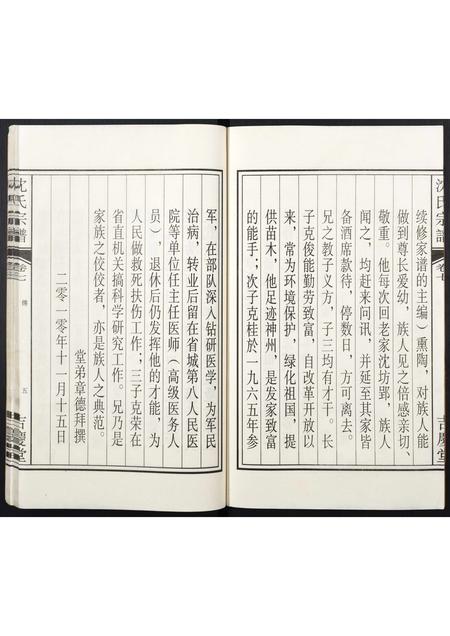 沈氏宗譜
卷七
吉慶堂
续修家谱的主编）熏陶，对族人能
做到尊长爱幼，族人见之倍感亲切、
敬重。他每次回老家沈坊郢，族人
闻之，均赶来问讯，并延至其家皆
备酒席款待，停数日，方可离去。
兄之教子义方，子三均有才干。长
子克俊能勤劳致富，自改革开放以
来，常为环境保护，绿化祖国，提
供苗木，他足迹神州，是发家致富
的能手；次子克桂於一九六五年参
军，在部队深入钻研医学，为军民
治病，转业后留在省城第八人民医
院等单位任主任医师（高级医务人
员），退休后仍发挥他的才能，为
人民做救死扶伤工作；三子克荣在
省直机关搞科学研究工作。兄乃是
家族之佼佼者，亦是族人之典范。
堂弟章德拜撰
二零一零年十一月十五日
沈氏宗譜
卷七
傳
五
吉慶堂